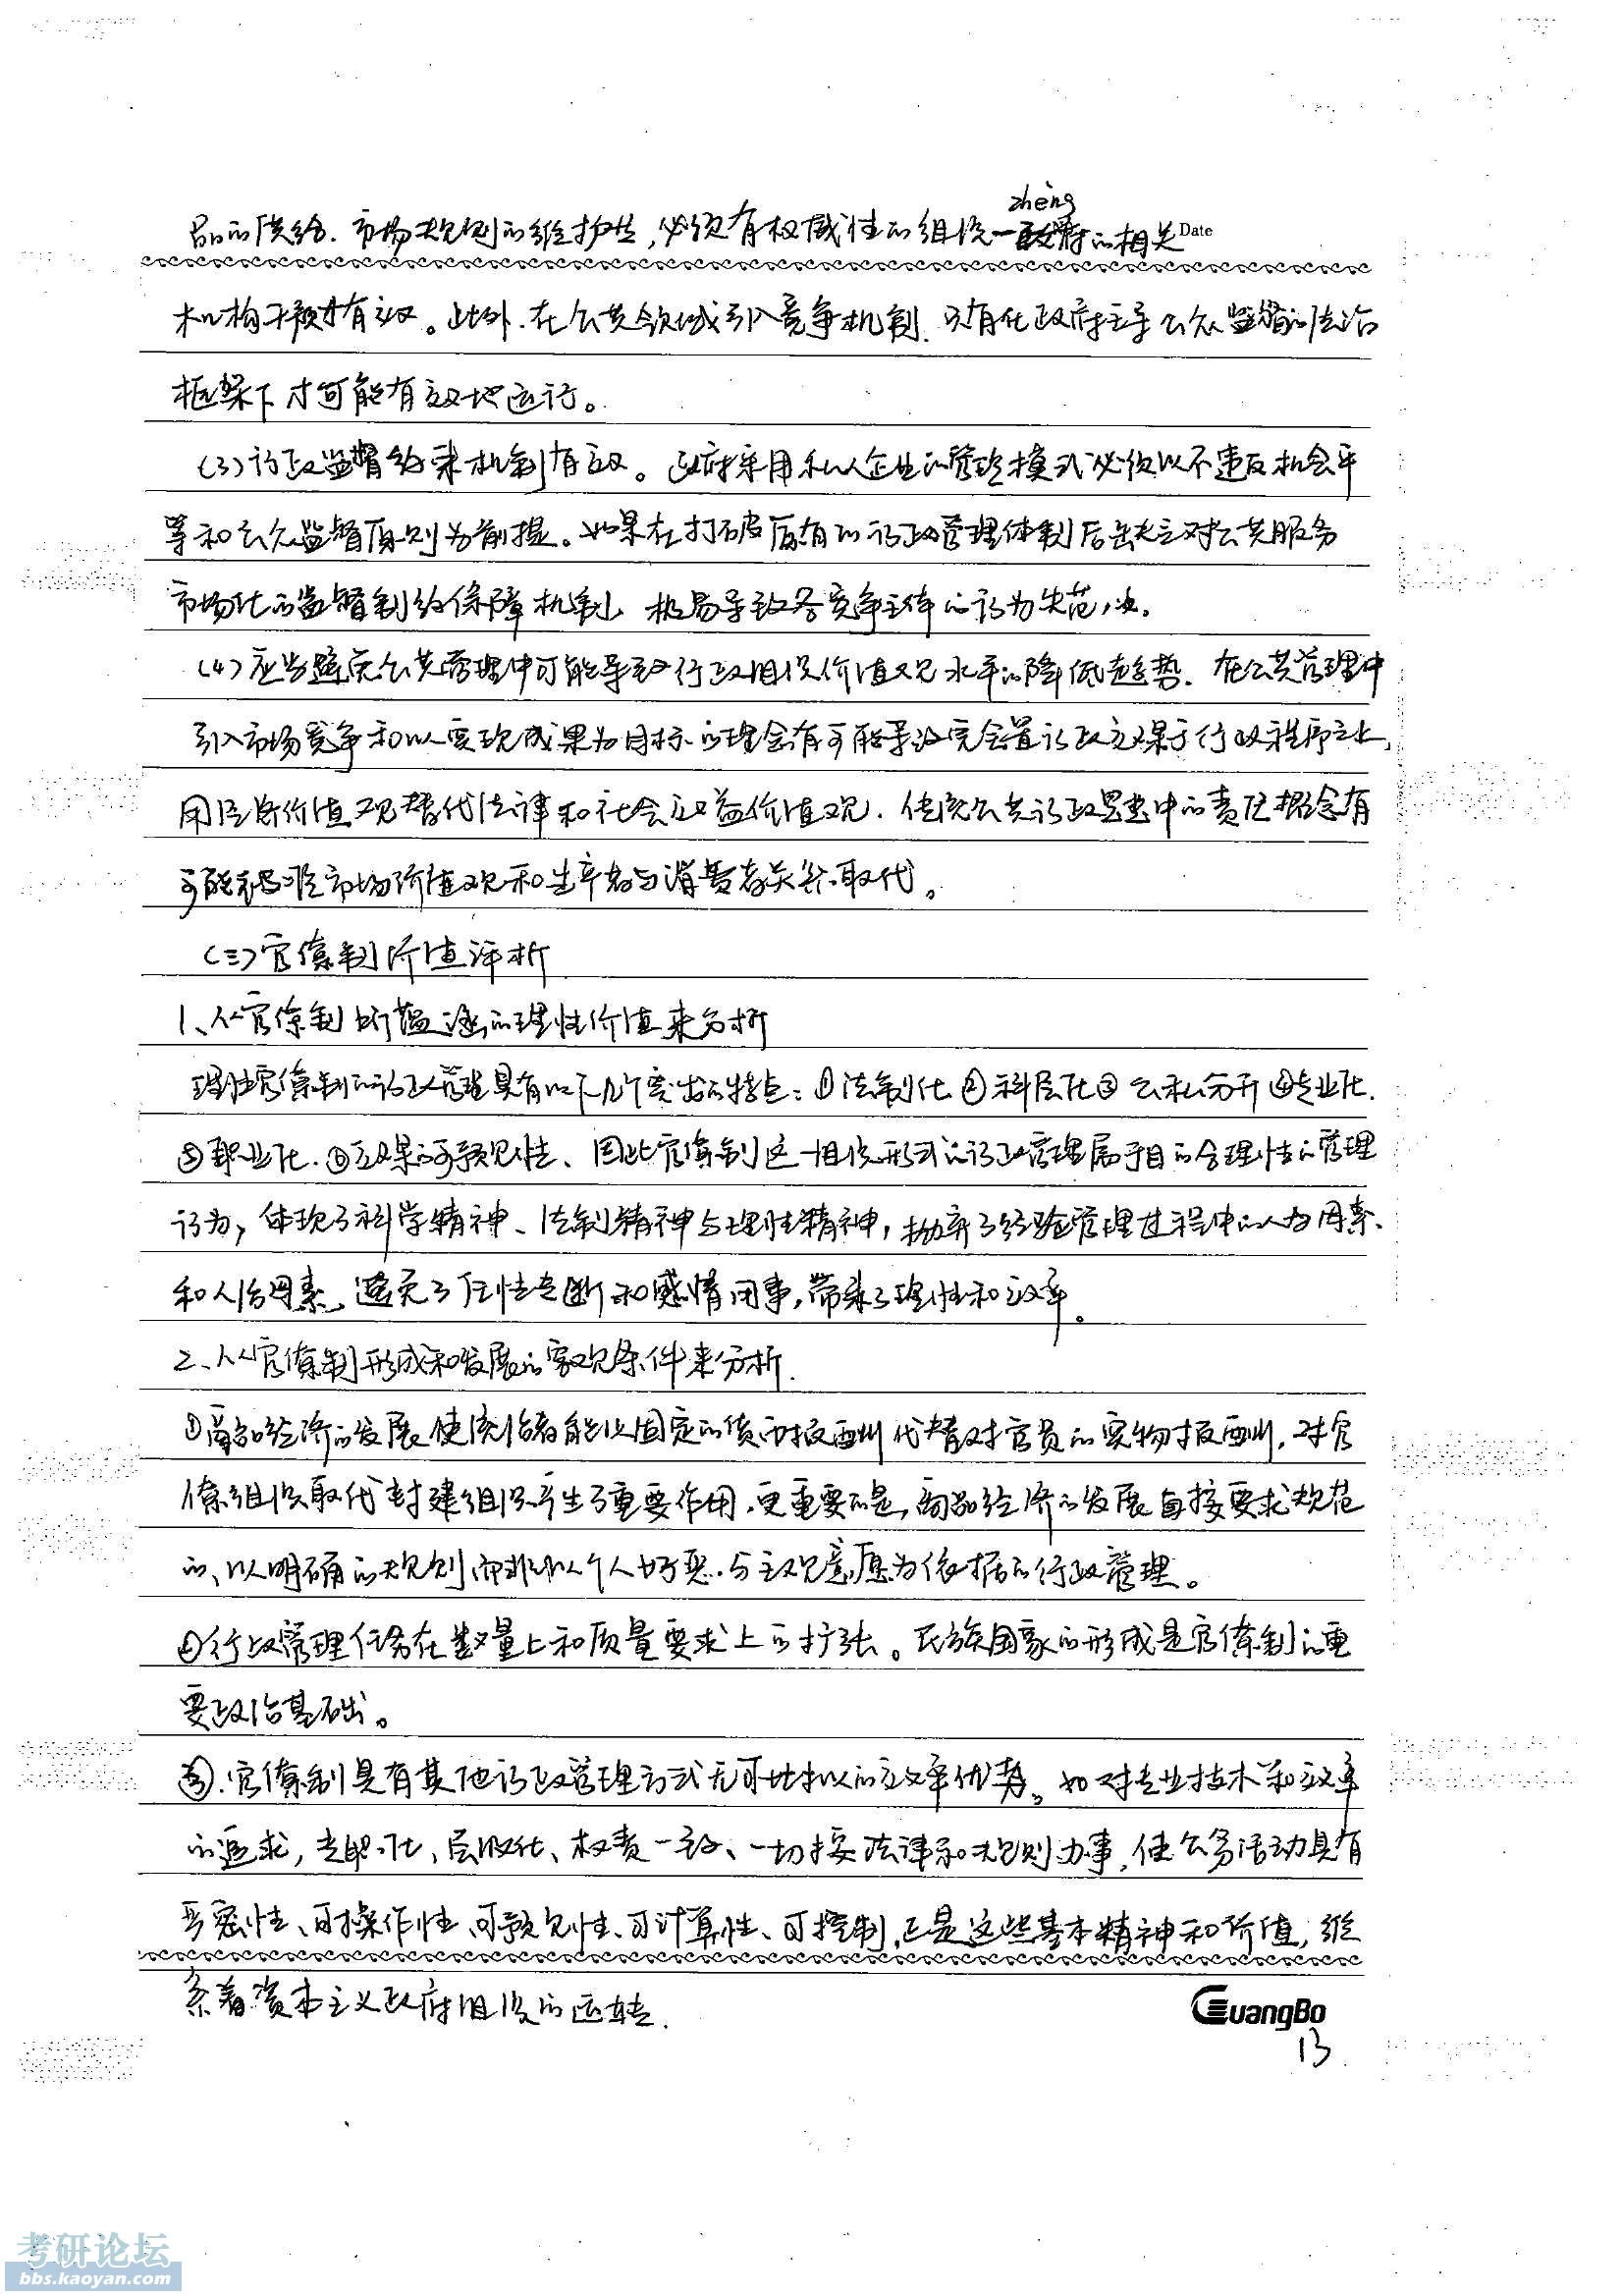 zhèng
品的供给、市场规则的维护等,必须有权威性的组织一政府的相关 Date
机构干预才有效。此外,在公共领域引入竞争机制,只有在政府主导公众监督的法治
框架下才可能有效地运行。
(3)行政监督约束机制有效。政府采用私人企业的管理模式必须以不违反机会平
等和公众监督原则为前提。如果在打破原有的行政管理体制后缺乏对公共服务
市场化的监督制约保障机制,极易导致各竞争主体的行为失范,
(4)应当避免公共管理中可能导致行政组织价值观水平的降低趋势。在公共管理中
引入市场竞争和以实现成果为目标的理念有可能导致完全置行政效果于行政程序之上,
用经济价值观替代法律和社会效益价值观。传统公共行政思想中的责任概念有
可能被市场价值观和生产者与消费者关系取代。
(三)官僚制价值评析
1、从官僚制所蕴涵的理性价值来分析
理性官僚制的行政管理具有以下几个突出的特点:①法制化②科层化③公私分开④专业化.
⑤职业化.⑥效果的可预见性、因此官僚制这一组织形式的行政管理属于目的合理性的管理
行为,体现了科学精神、法制精神与理性精神,抛弃了经验管理过程中的人为因素、
和人治因素,避免了任性专断和感情用事,带来了理性和效率。
2、从官僚制形成和发展的客观条件来分析.
①商品经济的发展使统治者能以固定的货币报酬代替对官员的实物报酬,对官
僚组织取代封建组织产生了重要作用,更重要的是,商品经济的发展直接要求规范
的、以明确的规则而非以个人好恶、与主观意愿为依据的行政管理。
②行政管理任务在数量上和质量要求上的扩张。民族国家的形成是官僚制的重
要政治基础。
③.官僚制具有其他行政管理方式无可比拟的效率优势。如对专业技术和效率
的追求,专职化、层级化、权责一致、一切按法律和规则办事,使公务活动具有
严密性、可操作性、可预见性、可计算性、可控制,正是这些基本精神和价值,维
系着资本主义政府组织的运转.
GuangBo
13
考研论坛
bbs.kaoyan.com